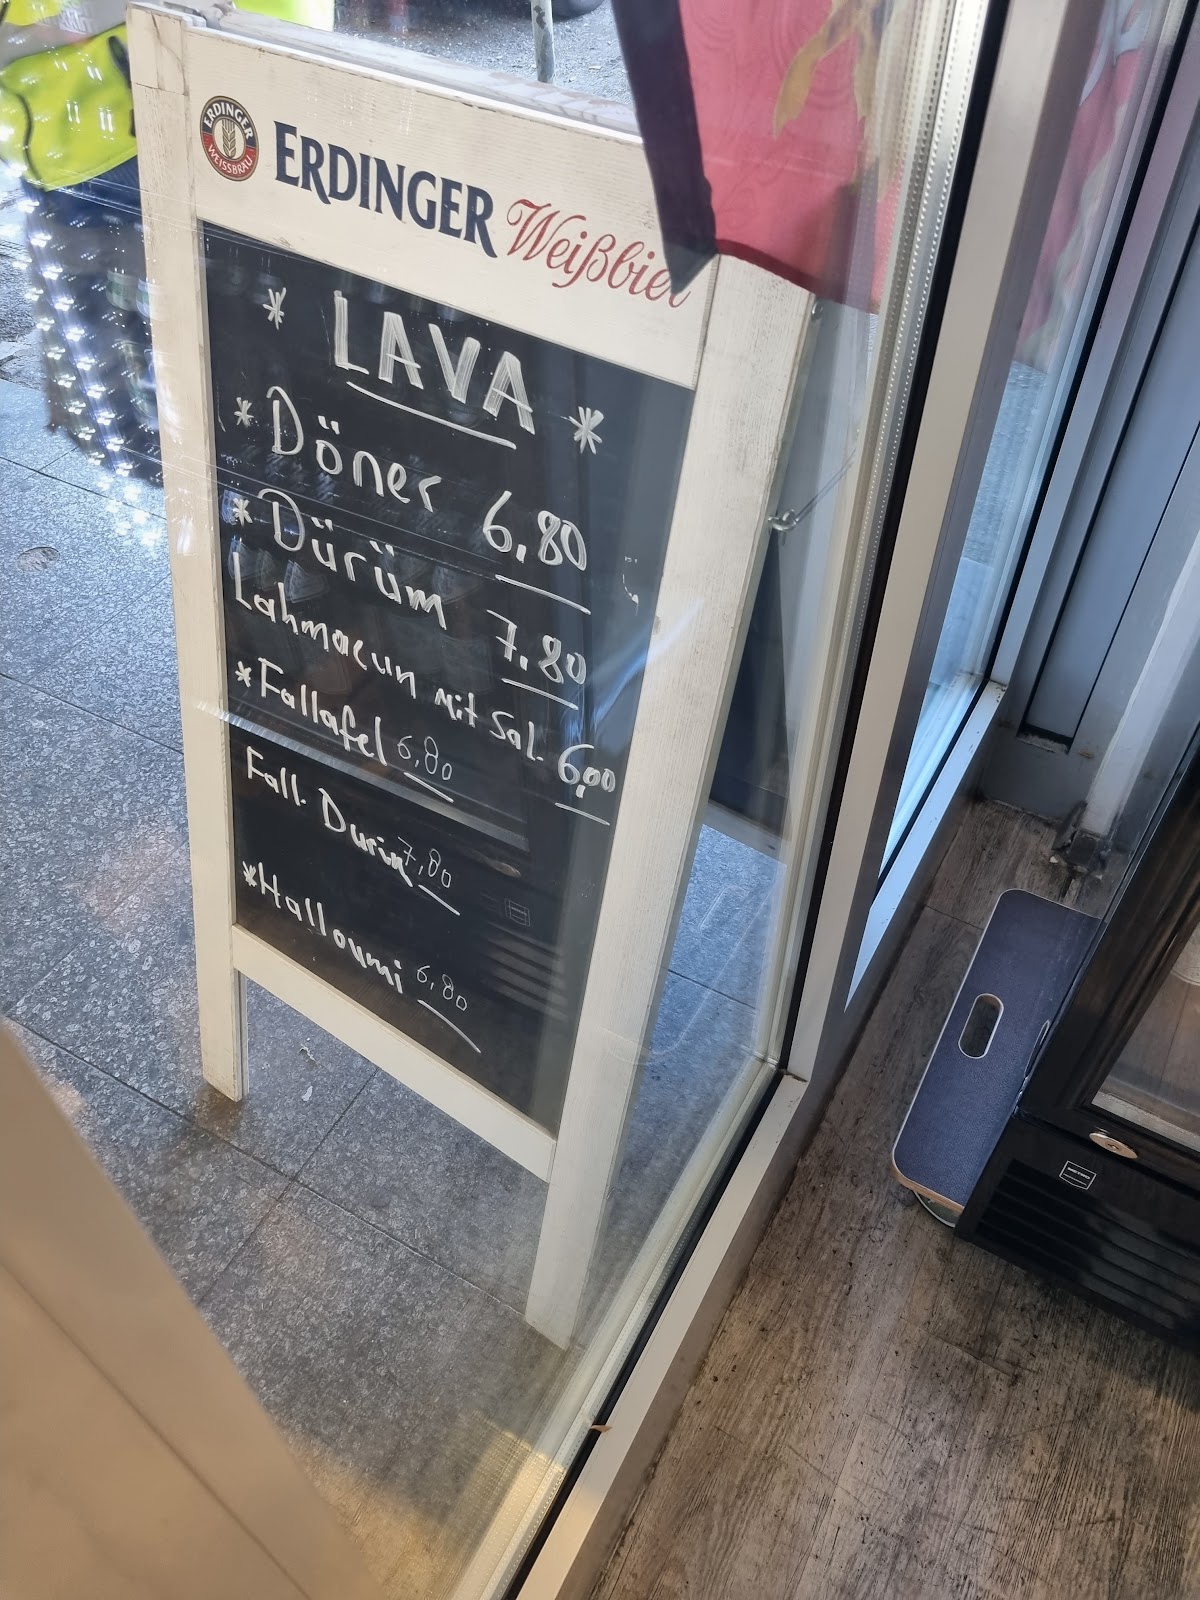 ERDINGER WEISSBRÄU
ERDINGER Weißbier
* LAVA *
* Döner 6,80
* Dürüm 7.80
Lahmacun mit Sal. 6,00
* Fallafel 6,80
Fall. Durim 7,80
* Halloumi 6,80